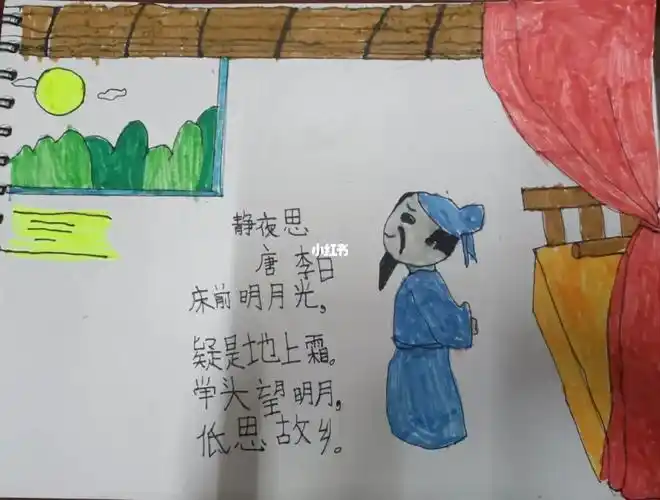 静夜思
唐 李白
小红书
床前明月光,
疑是地上霜。
学头望明月,
低思故乡。